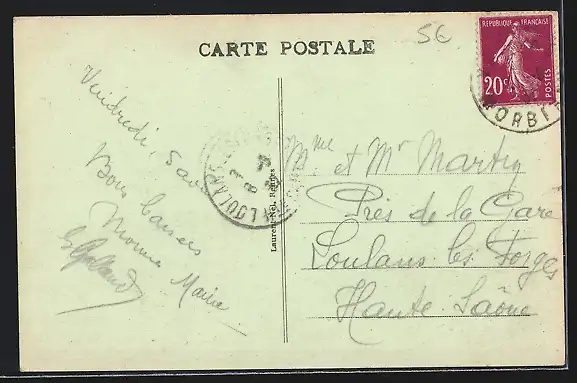 56
CARTE POSTALE
REPUBLIQUE FRANÇAISE
20c
POSTES
MORBI
Vendredi,
Bons baisers
Laurent-Nel, Rennes
Mme et Mr Martin
Près de la Gare
Loulans les Forges
Haute Saône